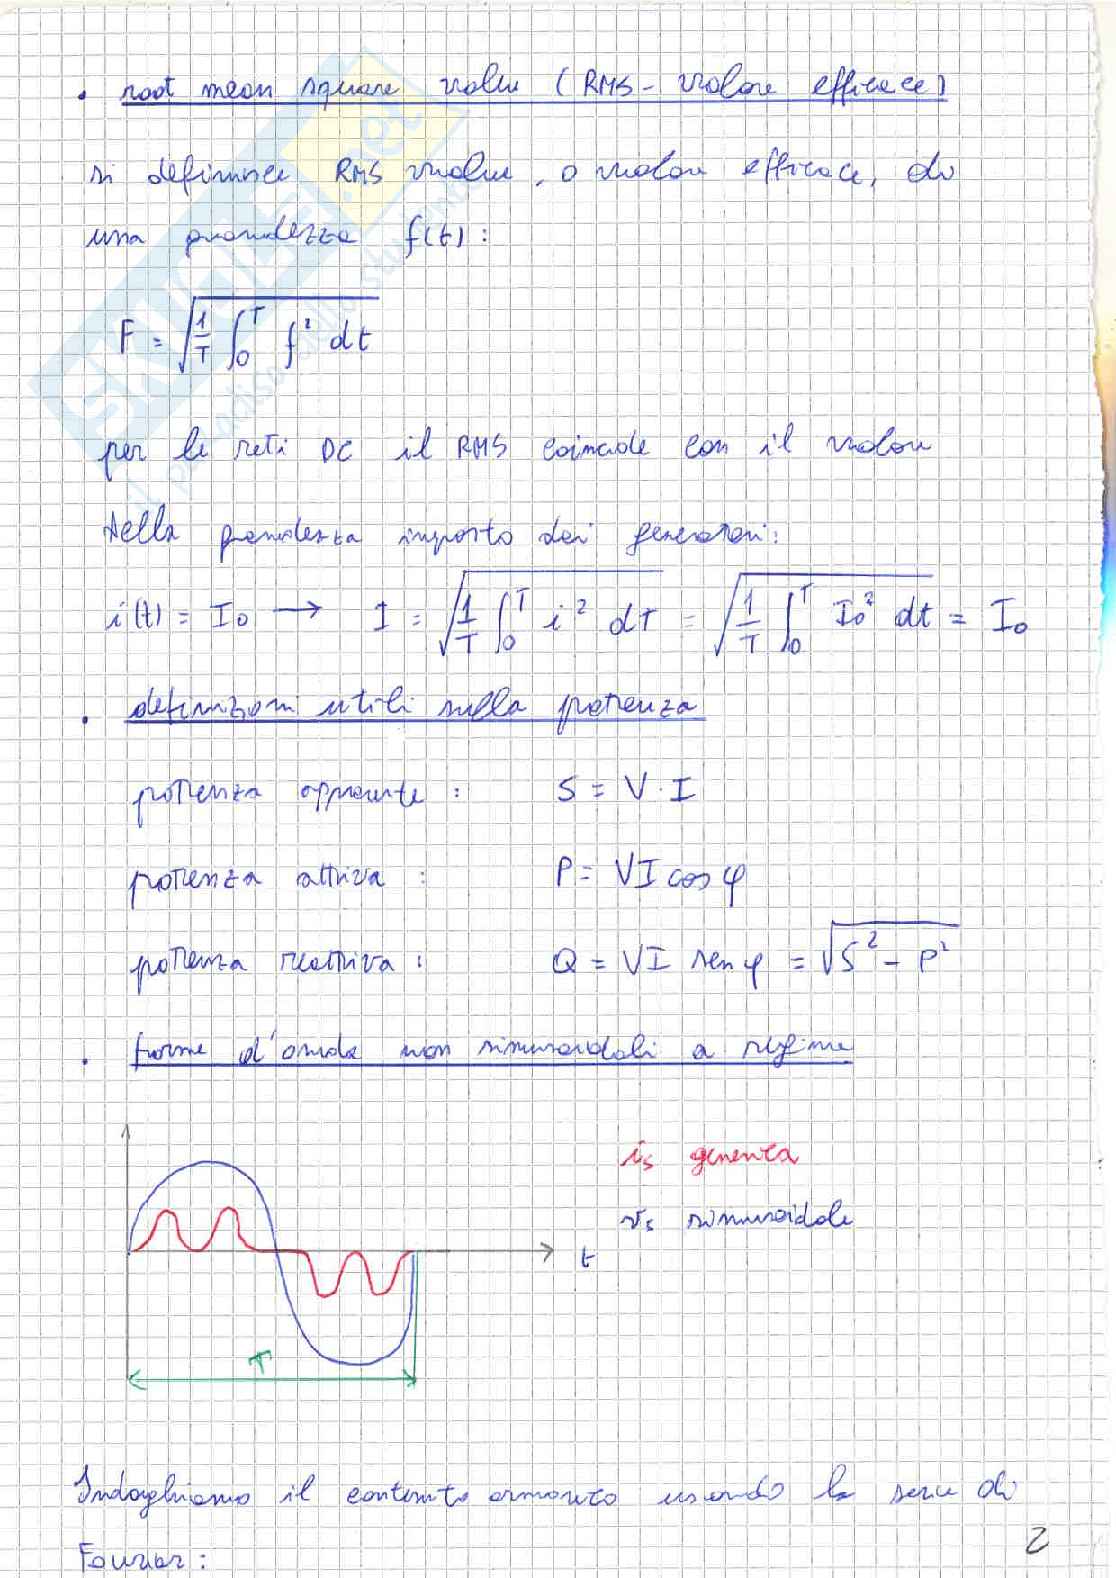 • root mean square value (RMS - valore efficace)
si definisce RMS value, o valore efficace, di
una grandezza f(t):
F = √(1/T ∫₀ᵀ f² dt)
per le reti DC il RMS coincide con il valore
della grandezza imposta dai generatori:
i(t) = I₀ → I = √(1/T ∫₀ᵀ i² dT) = √(1/T ∫₀ᵀ I₀² dt) = I₀
• definizioni utili sulla potenza
potenza apparente : S = V · I
potenza attiva : P = VI cos φ
potenza reattiva : Q = VI sen φ = √(S² - P²)
• forme d'onda non sinusoidali a regime
is generica
vs sinusoidale
t
T
Indaghiamo il contenuto armonico usando la serie di
Fourier:
2
SKUOLA.net
il paradiso dello studente